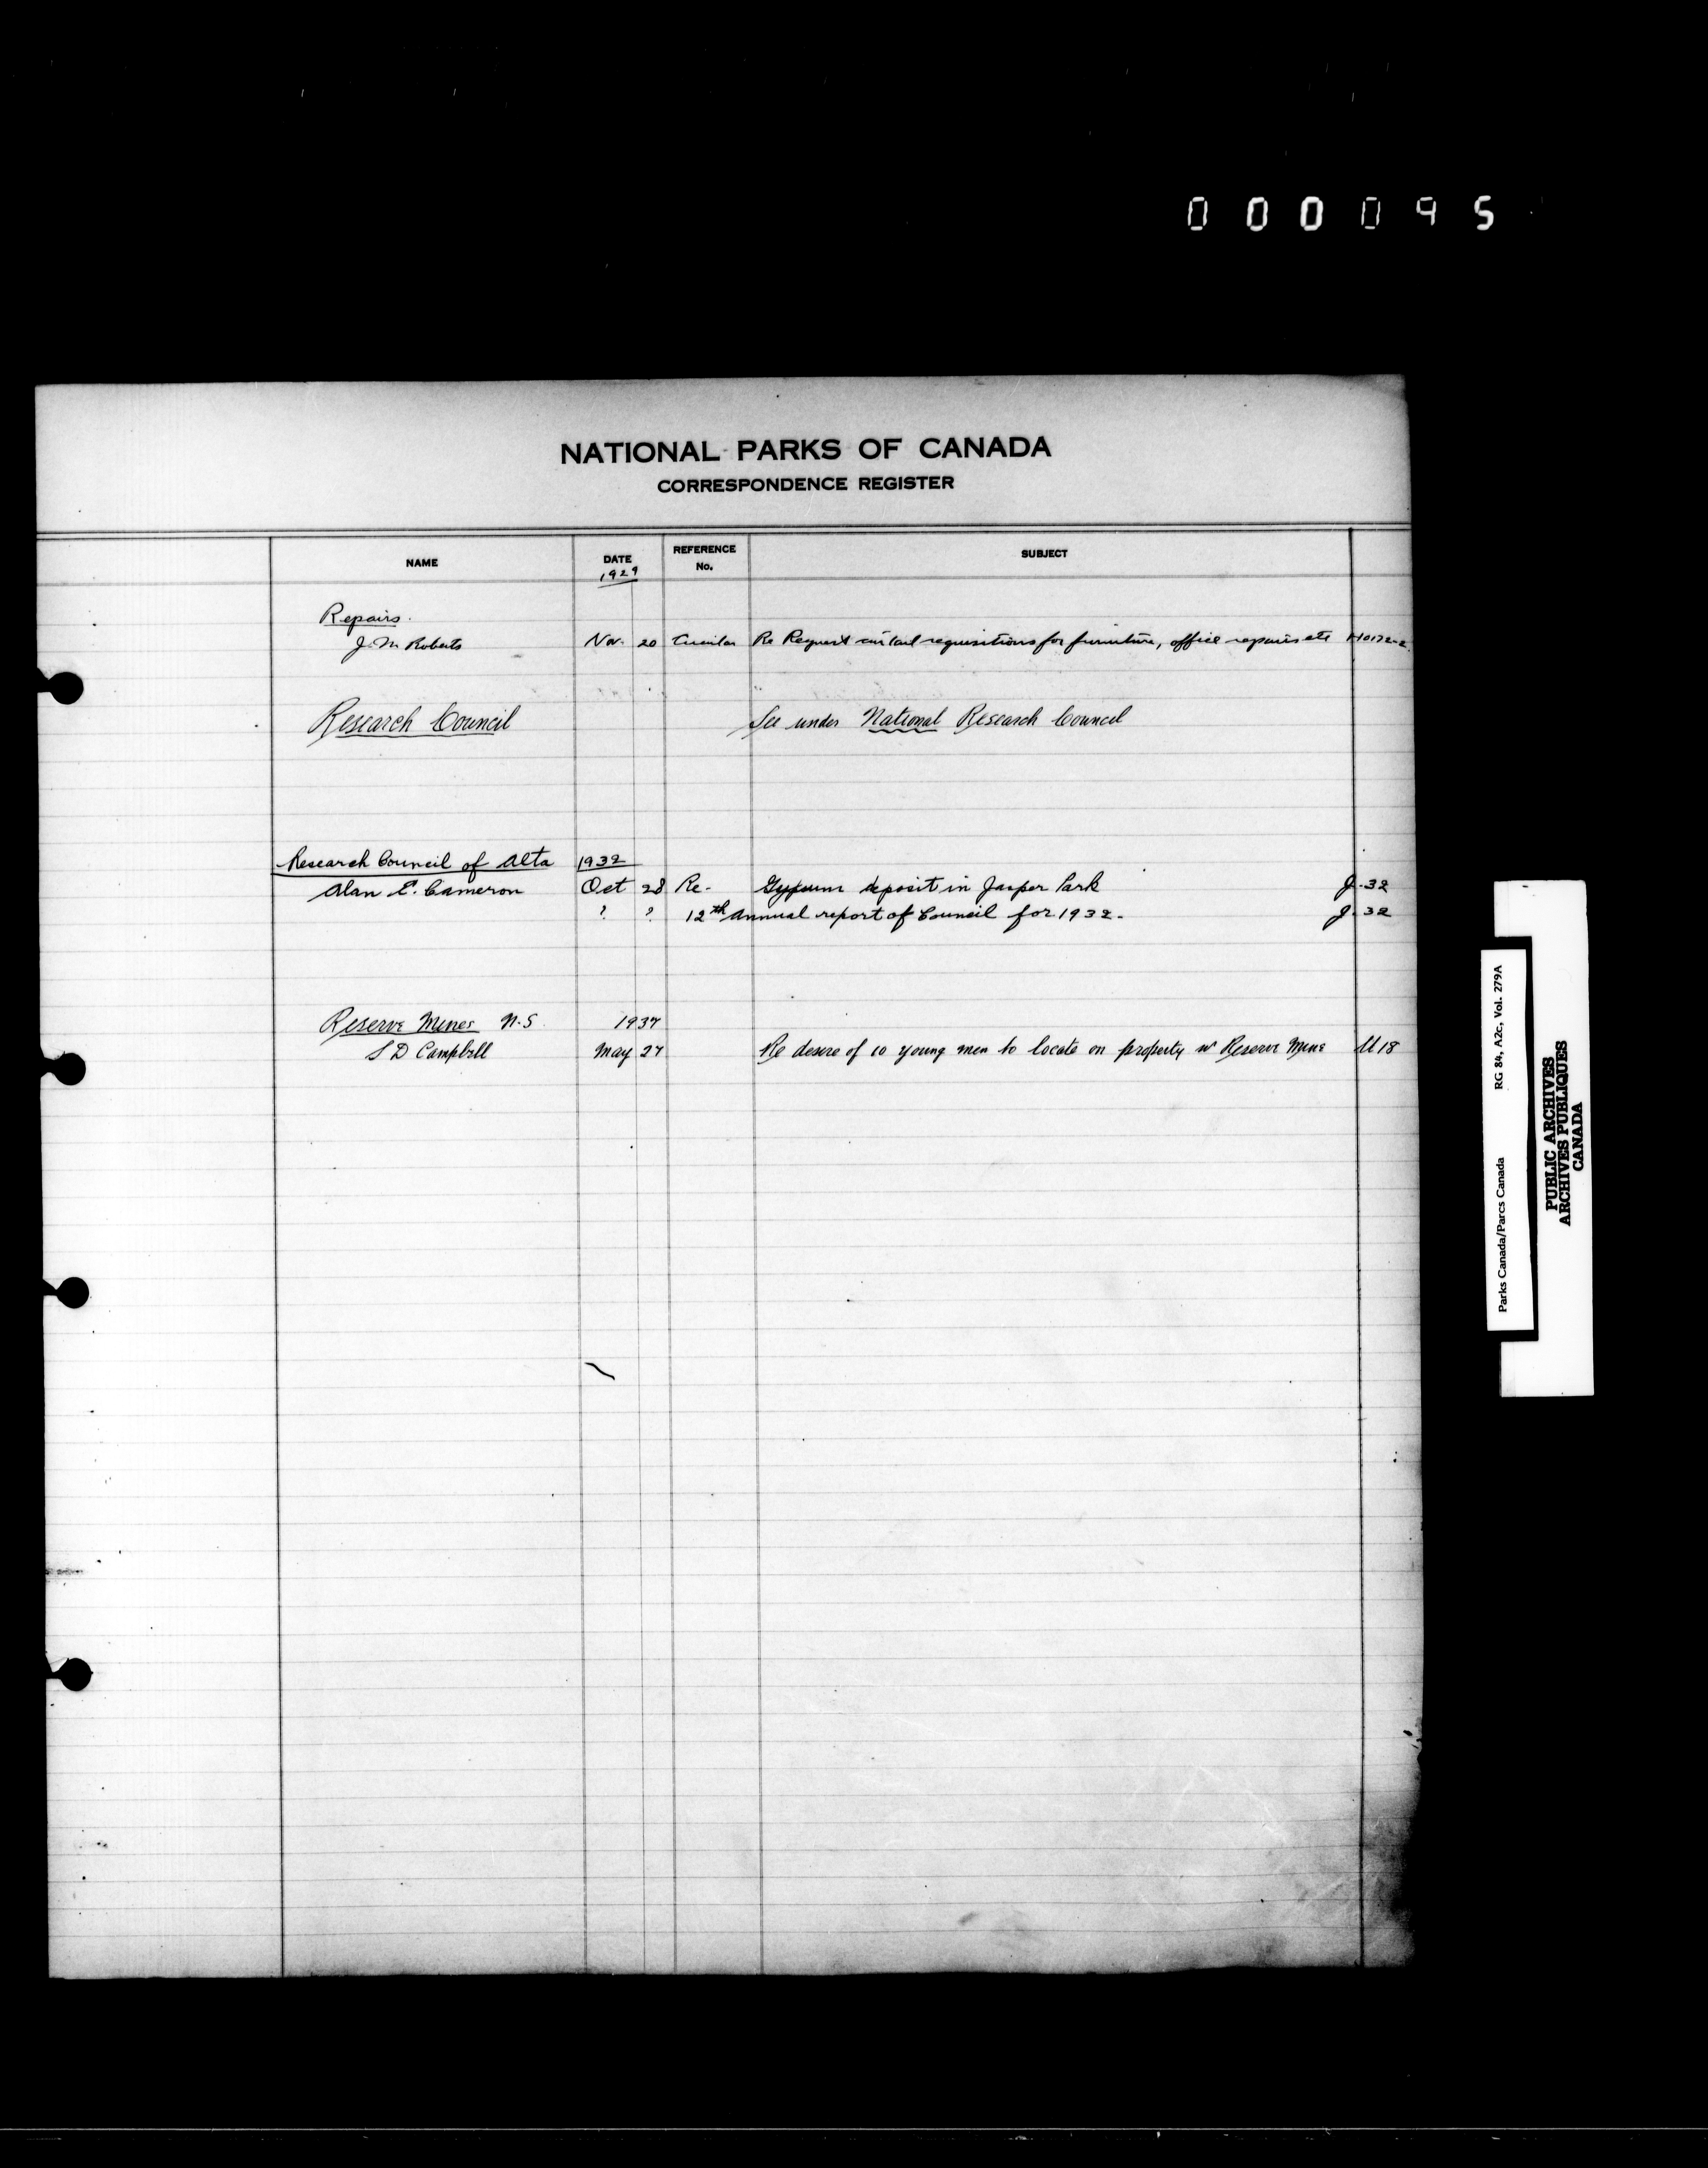 000095
NATIONAL PARKS OF CANADA
CORRESPONDENCE REGISTER
NAME DATE REFERENCE No. SUBJECT
1929
Repairs.
J. M. Roberts Nov. 20 Circular Re Request curtail requisitions for furniture, office repairs etc
Research Council See under National Research Council
Research Council of Alta 1932
Alan E. Cameron Oct 28 Re- Gypsum deposit in Jasper Park J-32
? ? 12th Annual report of Council for 1932. J-32
Reserve Mines N.S. 1937
S D Campbell May 27 Re desire of 10 young men to locate on property at Reserve Mine U18
Parks Canada/Parcs Canada RG 84, A2c, Vol. 279A
PUBLIC ARCHIVES
ARCHIVES PUBLIQUES
CANADA